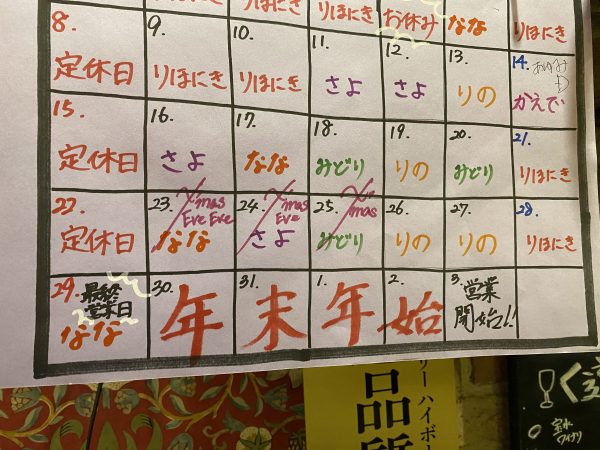 りほにき お休み なな りほにき
8. 9. 10. 11. 12. 13. 14.
定休日 りほにき りほにき さよ さよ りの かえで
15. 16. 17. 18. 19. 20. 21.
定休日 さよ なな みどり りの みどり りほにき
22. 23. X'mas Eve Eve 24. X'mas Eve 25. X'mas 26. 27. 28.
定休日 なな さよ みどり りの りの りほにき
29. 最終営業日 30. 31. 1. 2. 3. 営業開始!!
なな 年 末 年 始
品質
リー ハイボー